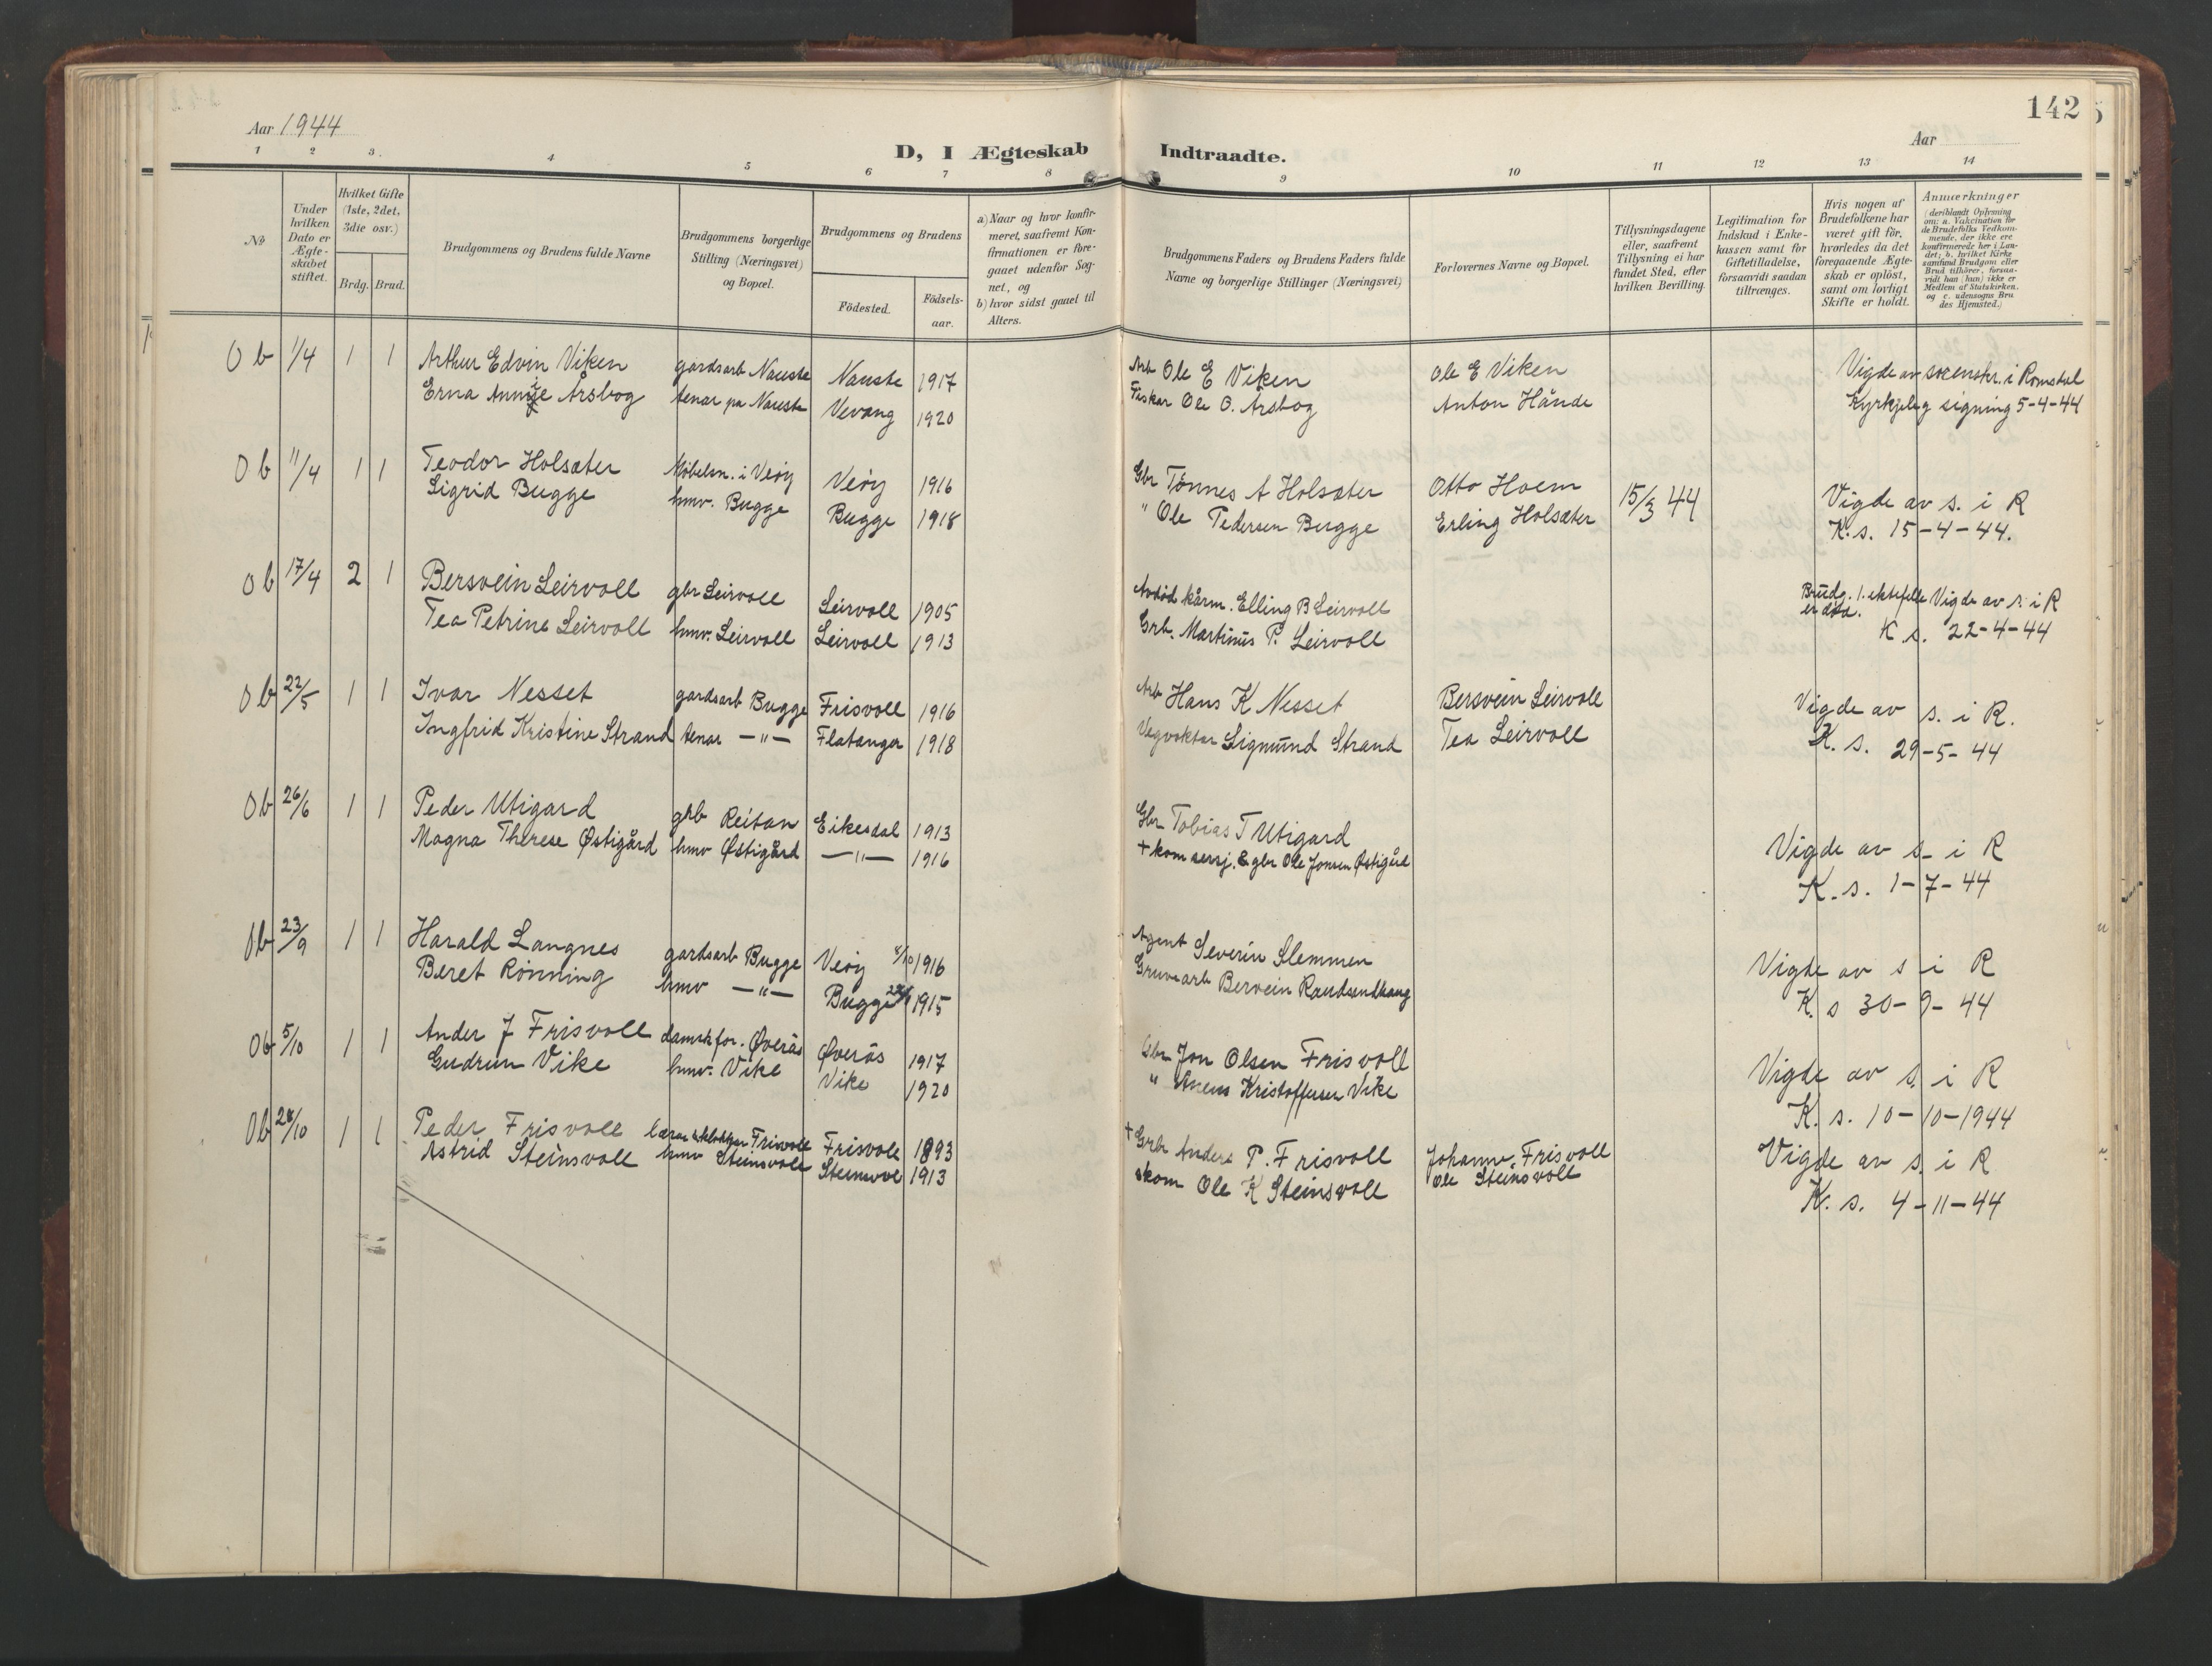 142
Aar 1944
Aar
D, I Ægteskab Indtraadte.
1 2 3. 4 5 6 7 8 9 10 11 12 13 14
No
Under hvilken Dato er Ægteskabet stiftet.
Hvilket Gifte (1ste, 2det, 3die osv.)
Brdg. Brud.
Brudgommens og Brudens fulde Navne
Brudgommens borgerlige Stilling (Næringsvei) og Bopæl.
Brudgommens og Brudens
Födested.
Födsels-aar.
a) Naar og hvor konfirmeret, saafremt Konfirmationen er foregaaet udenfor Sognet, og
b) hvor sidst gaaet til Alters.
Brudgommens Faders og Brudens Faders fulde Navne og borgerlige Stillinger (Næringsvei)
Forlovernes Navne og Bopæl.
Tillysningsdagene eller, saafremt Tillysning ei har fundet Sted, efter hvilken Bevilling.
Legitimation for Indskud i Enkekassen samt for Giftetilladelse, forsaavidt saadan tiltrænges.
Hvis nogen af Brudefolkene har været gift för, hvorledes da det foregaaende Ægteskab er oplöst, samt om lovligt Skifte er holdt.
Anmærkninger
(deriblandt Oplysning om: a. Vakcination for de Brudefolks Vedkommende, der ikke ere konfirmerede her i Landet; b. hvilket Kirkesamfund Brudgom eller Brud tilhörer, forsaavidt han (hun) ikke er Medlem af Statskirken. og c. udensogns Brudes Hjemsted.)
Ob 1/4 1 1 Arthur Edvin Viken gardsarb Nauste Nauste 1917 Arb Ole E Viken Ole E Viken Vigde av sorenskr. i Romsdal
Erna Annie Årsbog tenar på Nauste Vevang 1920 Fiskar Ole O. Årsbog Anton Hånde Kyrkjeleg signing 5-4-44
Ob 11/4 1 1 Teodor Holsæter Møbelsn. i Veøy Veøy 1916 Gbr Tønnes A Holsæter Otto Hoem 15/3 44 Vigde av s. i R
Sigrid Bugge hmv. Bugge Bugge 1918 " Ole Pedersen Bugge Erling Holsæter K. s. 15-4-44.
Ob 17/4 2 1 Bersvein Leirvoll gbr Leirvoll Leirvoll 1905 Avdød kårm. Elling B Leirvoll Brudg. 1. ektefelle er død. Vigde av s. i R
Tea Petrine Leirvoll hmv. Leirvoll Leirvoll 1913 Grb. Martinus P. Leirvoll K s. 22-4-44
Ob 22/5 1 1 Ivar Nesset gardsarb Bugge Frisvoll 1916 Arb Hans K Nesset Bersvein Leirvoll Vigde av s. i R.
Ingfrid Kristine Strand tenar —"— Flatanger 1918 Vegvoktar Sigmund Strand Tea Leirvoll K. s. 29-5-44
Ob 26/6 1 1 Peder Utigard grb Reitan Eikesdal 1913 Gbr Tobias T Utigard Vigde av s. i R
Magna Therese Østigård hmv Østigård —"— 1916 + kom serj. & gbr Ole Jonsen Østigård K. s. 1-7-44
Ob 23/9 1 1 Harald Langnes gardsarb Bugge Veøy 1916 Agent Severin Slemmen Vigde av s i R
Beret Rønning hmv —"— Bugge 1915 Gruvearb K. s 30-9-44
Ob 5/10 1 1 Ander J Frisvoll Øverås Øverås 1917 Gbr Jon Olsen Frisvoll Vigde av s. i R
Gudrun Vike hmv. Vike Vike 1920 " Kristoffersen Vike K. s. 10-10-1944
Ob 28/10 1 1 Peder Frisvoll lærar & klokkar Frisvoll Frisvoll 1893 + Grbr Anders P. Frisvoll Johann. Frisvoll Vigde av s. i R
Astrid Steinsvoll hmv Steinsvoll Steinsvol 1913 skom Ole K Steinsvoll Ole Steinsvoll K. s. 4-11-44